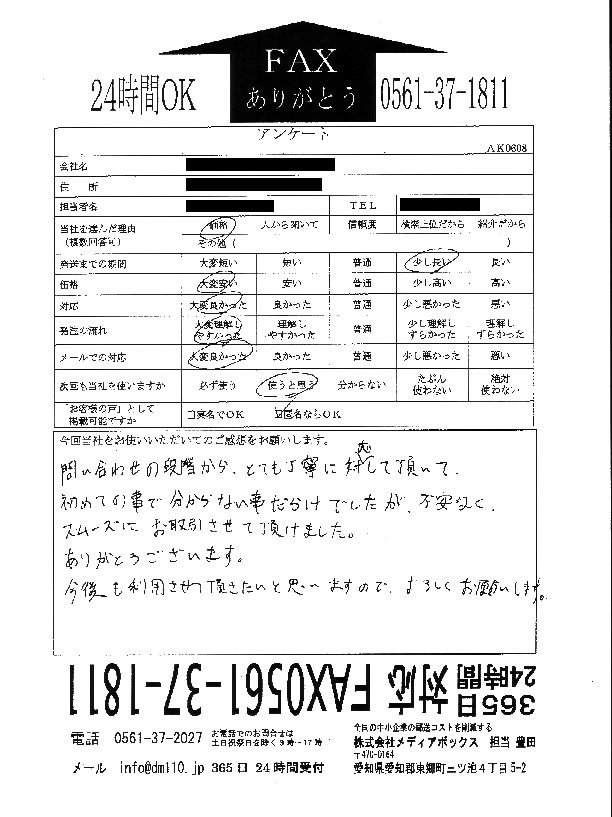 FAX
24時間OK
ありがとう
0561-37-1811
アンケート
AK0608
会社名
住 所
担当者名 TEL
当社を選んだ理由 価格 人から聞いて 信頼度 検索上位だから 紹介だから
(複数回答可) その他 ( )
発送までの期間 大変短い 短い 普通 少し長い 長い
価格 大変安い 安い 普通 少し高い 高い
対応 大変良かった 良かった 普通 少し悪かった 悪い
発注の流れ 大変理解しやすかった 理解しやすかった 普通 少し理解しずらかった 理解しずらかった
メールでの対応 大変良かった 良かった 普通 少し悪かった 悪い
次回も当社を使いますか 必ず使う 使うと思う 分からない たぶん使わない 絶対使わない
「お客様の声」として掲載可能ですか □実名でOK ☑匿名ならOK
今回当社をお使いいただいてのご感想をお願いします。
問い合わせの段階から、とても丁寧に対応して頂いて、
初めての事で分からない事だらけでしたが、不安なく、
スムーズにお取引させて頂けました。
ありがとうございます。
今後も利用させて頂きたいと思いますので、よろしくお願いします。
365日24時間対応 FAX0561-37-1811
電話 0561-37-2027 お電話でのお問合せは土日祝祭日を除く9時~17時
メール info@dm110.jp 365日 24時間受付
全国の中小企業の郵送コストを削減する
株式会社メディアボックス 担当 豊田
〒470-0164
愛知県愛知郡東郷町三ツ池4丁目5-2